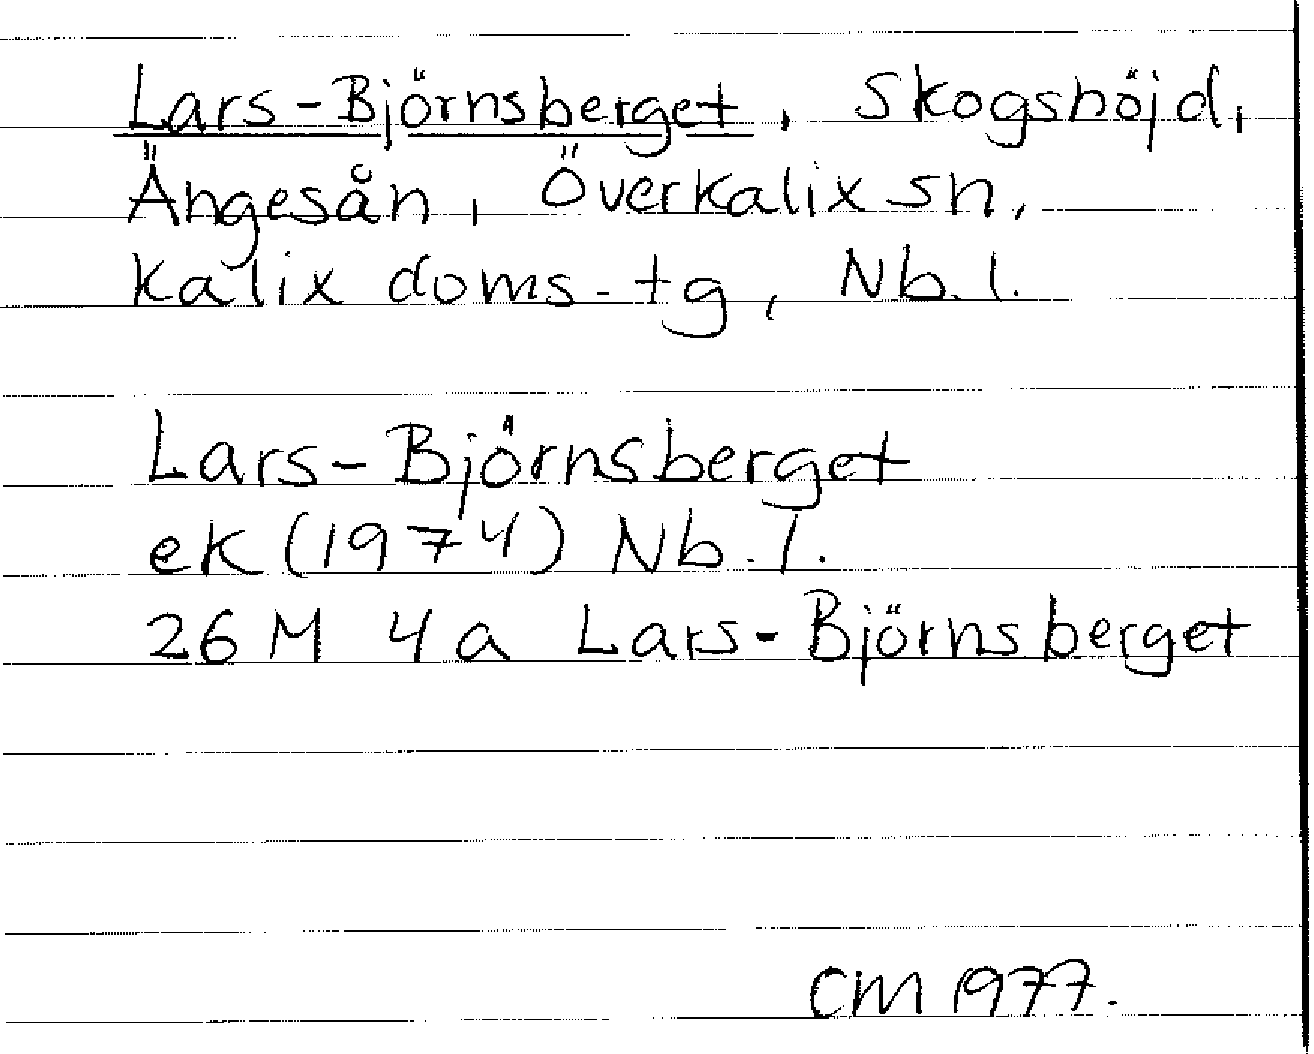 Lars-Björnsberget, Skogshöjd,
Ängesån, Överkalix sn,
Kalix doms.tg, Nb.l.
Lars-Björnsberget
ek (1974) Nb.l.
26 M 4 a Lars-Björnsberget
CM 1977.